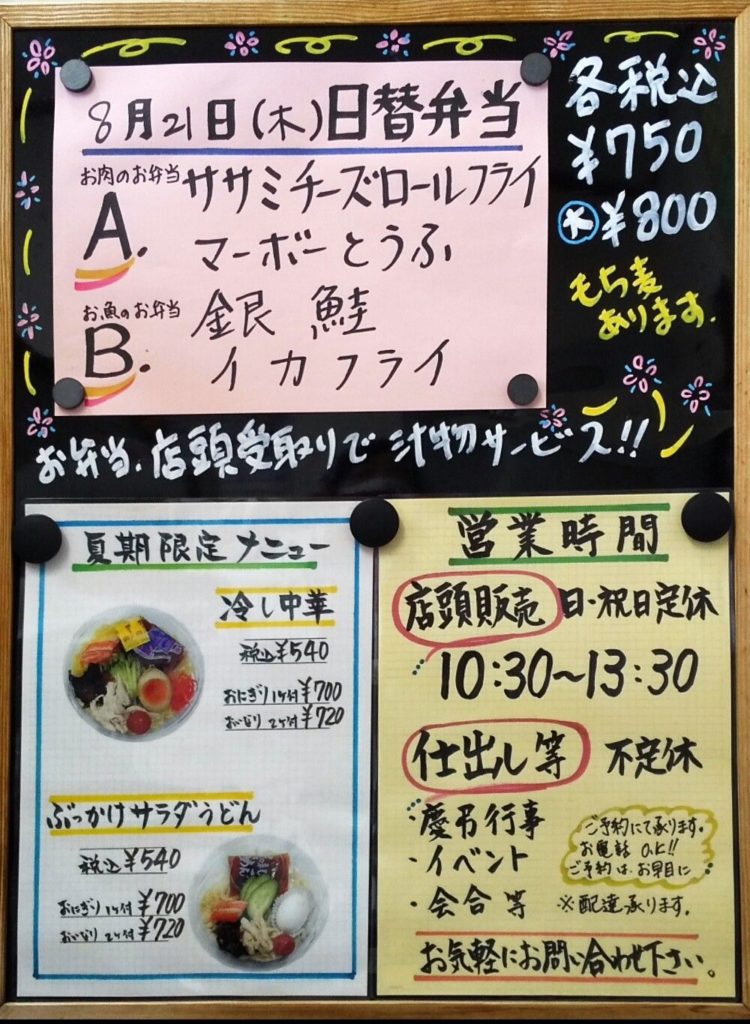 8月21日(木)日替弁当
お肉のお弁当
A.
ササミチーズロールフライ
マーボーとうふ
お魚のお弁当
B.
銀鮭
イカフライ
各税込
¥750
大 ¥800
もち麦
あります.
お弁当、店頭受取りで 汁物サービス!!
夏期限定メニュー
冷し中華
税込¥540
おにぎり1ケ付¥700
おいなり2ケ付¥720
ぶっかけサラダうどん
税込¥540
おにぎり1ケ付¥700
おいなり2ケ付¥720
営業時間
店頭販売 日・祝日定休
10:30~13:30
仕出し等 不定休
・慶弔行事
・イベント
・会合等
ご予約にて承ります。
お電話O.K!!
ご予約は、お早目に
※配達承ります.
お気軽にお問い合わせ下さい。